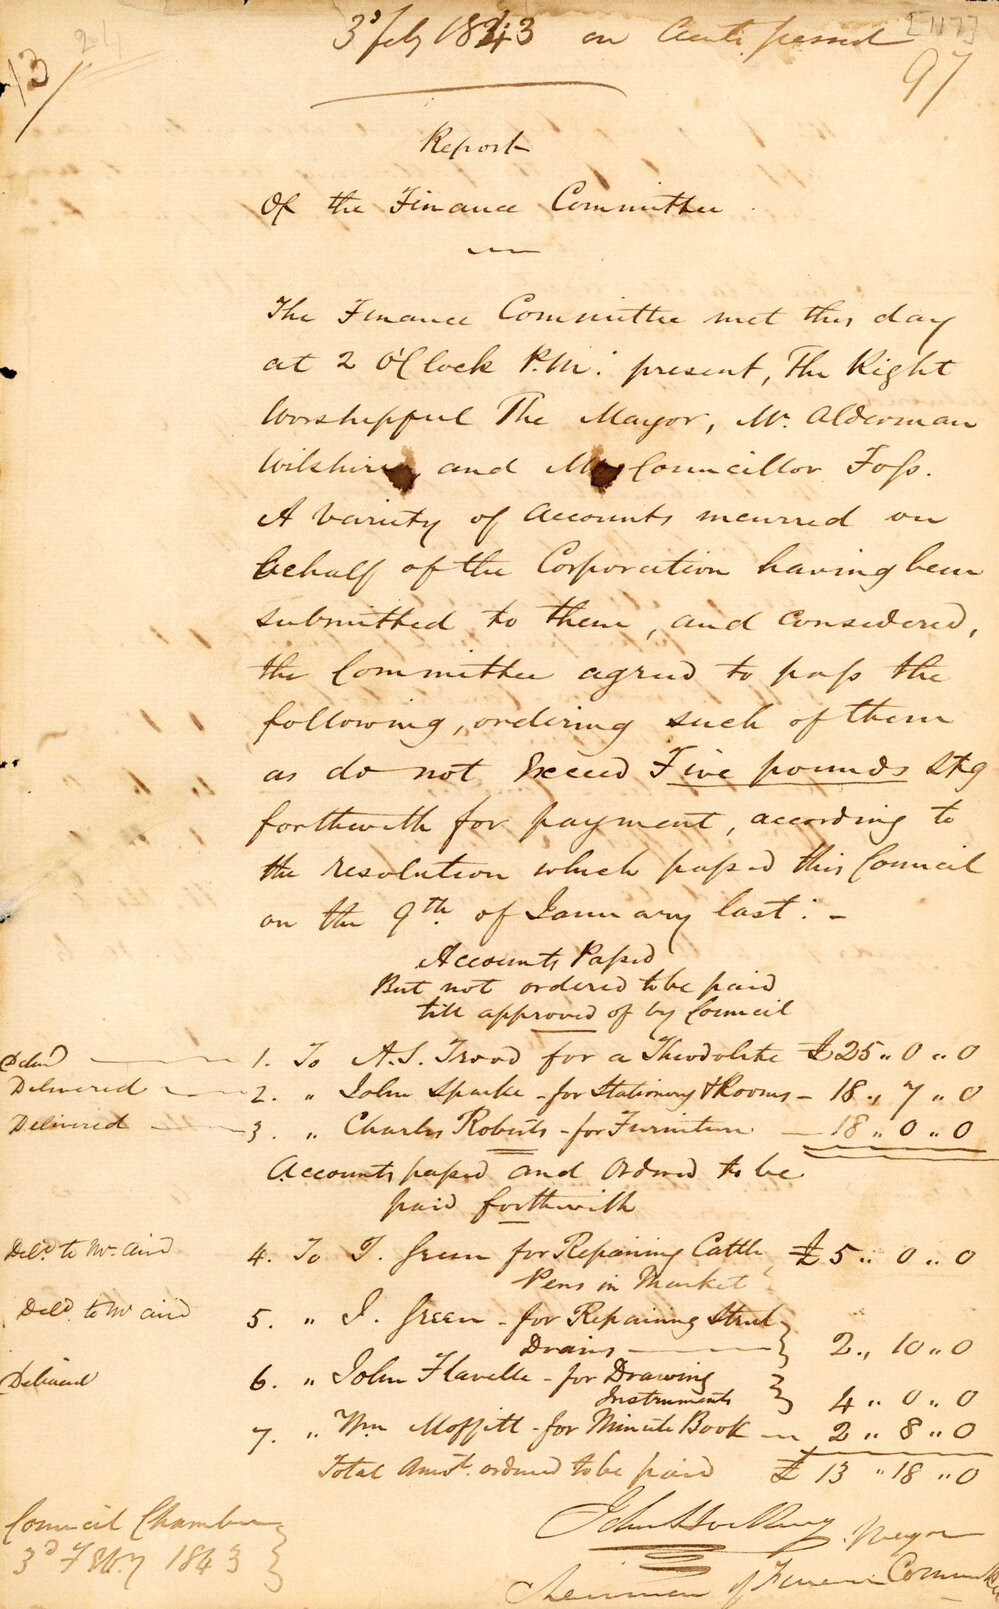 [117]
24
13/
3d Feby 1843 on Accts passed
97
Report
Of the Finance Committee
The Finance Committee met this day
at 2 O'Clock P.M: present, The Right
Worshipful The Mayor, Mr. Alderman
Wilshire, and Mr Councillor Foss.
A Variety of Accounts incurred on
behalf of the Corporation having been
submitted to them, and considered,
the Committee agreed to pass the
following, ordering such of them
as do not Exceed Five pounds Stg
forthwith for payment, according to
the resolution which passed this Council
on the 9th of January last: -
Accounts Passed
But not ordered to be paid
till approved of by Council
Deld 1. To A.S. Trood for a Theodolite £25 " 0 " 0
Delivered 2. " John Sparke - for Stationery & Rooms - 18 " 7 " 0
Delivered 3. " Charles Roberts - for Furniture 18 " 0 " 0
Accounts passed and Ordered to be
paid forthwith
Deld to Mr Aird 4. To T. Green for Repairing Cattle £5 " 0 " 0
Pens in Market
Deld to Mr Aird 5. " J. Green - for Repairing Street
Drains 2 " 10 " 0
Delivered 6. " John Flavelle - for Drawing
Instruments 4 " 0 " 0
7. " Wm Moffitt - for Minute Book 2 " 8 " 0
Total Amot. ordered to be paid £ 13 " 18 " 0
John Hosking Mayor
Chairman of Finance Committee
Council Chamber
3d Feby 1843